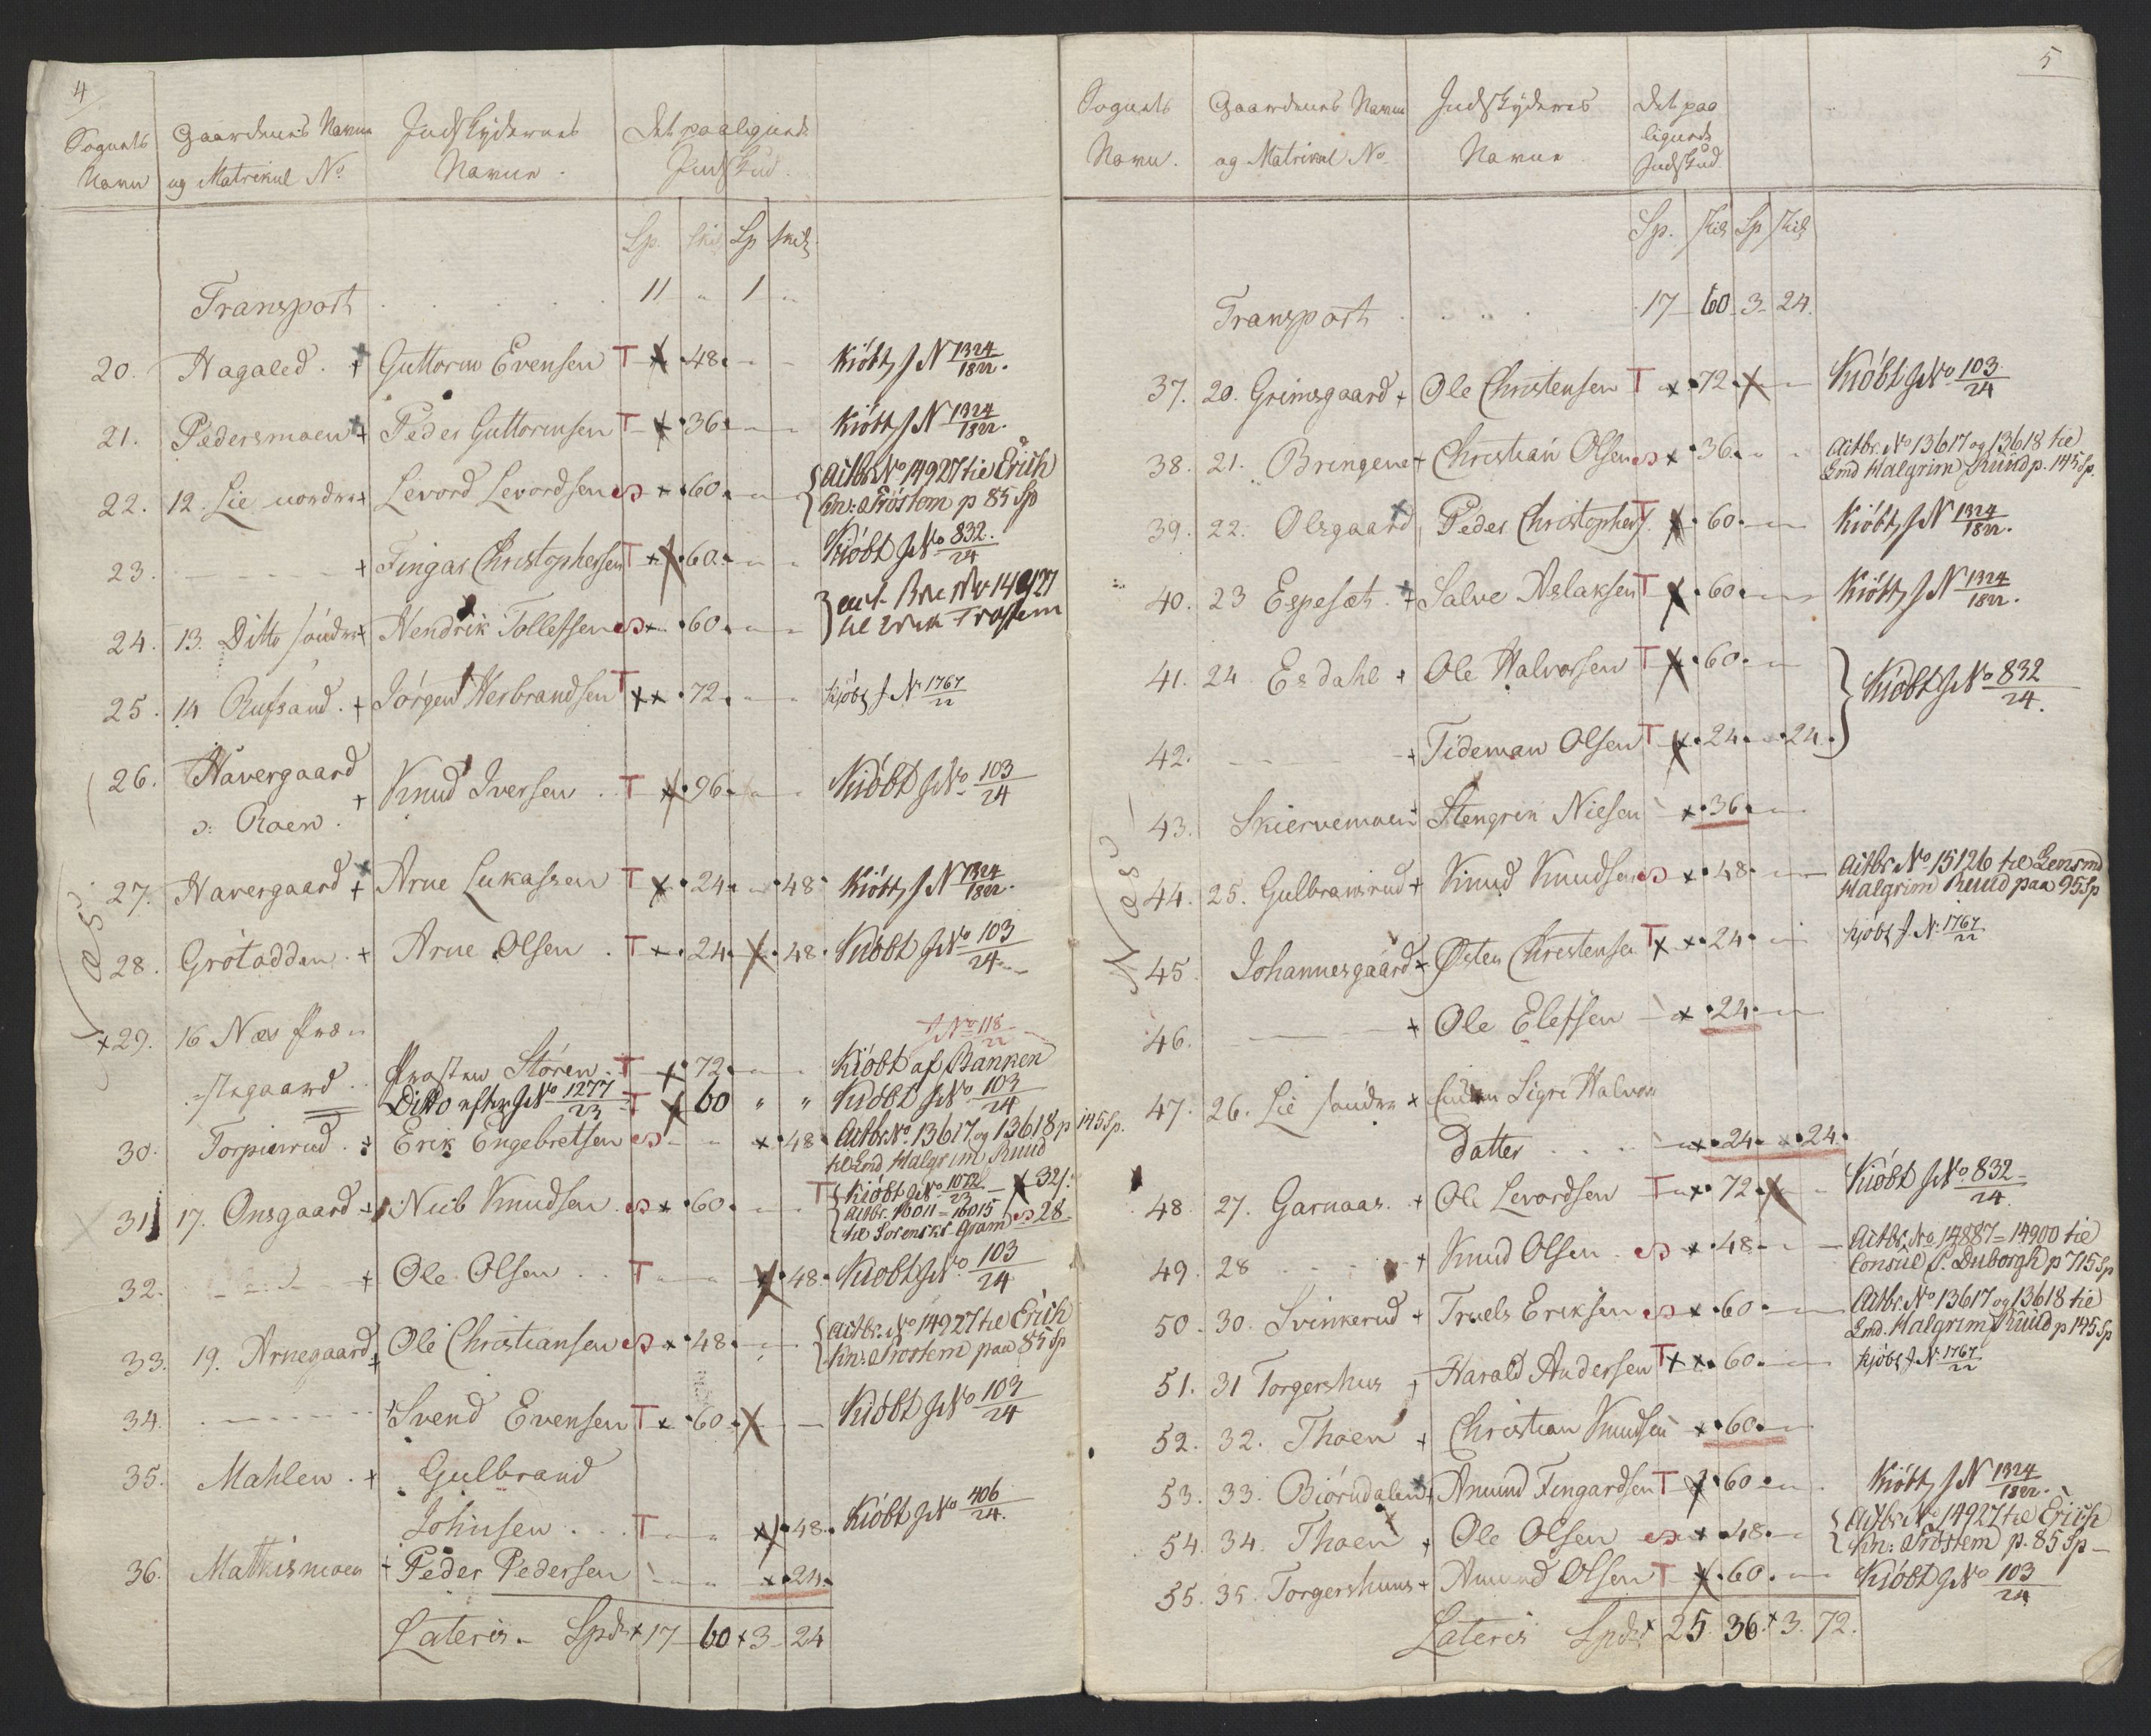 4
Sognets Gaardenes Navne Indskydernes Det paalignede
Navn og Matrikul No. Navne. Indskud.
Sp. skil Sp skil
Transport . . . . . 11 " 1 "
20. Hagaled. + Guttorm Evensen T x 48. Kiöbt J N 1324/1822.
21. Pedersmoen + Peder Guttormsen T x 36. Kiöbt J N 1324/1822.
22. 12. Lie nordre + Levord Levordsen S x 60. Actbr. No 14927 til Erich
Kn: Tröstem p 85 Sp
23. — + Fingar Christophersen T x 60. Kiöbt J No 832./24
24. 13. Ditto söndre + Hendrik Tollefsen S x 60. act. Bre No 14927
til Erik Trostem
25. 14 Rufsand. + Jörgen Herbrandsen T xx 72. kjöbt J N. 1767/22
26. Havergaard
o: Roen. + Knud Iversen. T x 96. Kiöbt J No. 103/24
27. Havergaard + Arne Lukassen T x 24. 48 Kiöbt J N 1324/1822.
Næs
28. Grötadden. + Arne Olsen. T x 24. x 48. Kiöbt J No. 103/24
x 29. 16 Næs Præ=
J No 118/22
=stegaard. Prosten Stören. T x 72. Kiöbt af Banken
Ditto efter J No 1277/23 T x 60 " " Kiöbt J No. 103/24
30. Torpierud. + Erik Engebretsen S x 48. Actbr. No. 13617 og 13618 p 145 Sp.
til Lmd Halgrim Ruud
31. 17. Onsgaard + Nieb Knudsen. S x 60. T Kiöbt J No 1072/23 — x 32 s:
Actbr. 16011 = 16015 S 28
til Sorenskr. Gram
32. — + Ole Olsen . . T x 48. Kiöbt J No. 103/24
33. 19. Arnegaard + Ole Christiansen S x 48. Actbr. No 14927 til Erich
Kn: Trostem paa 85 Sp
34. — + Svend Evensen T x 60. x Kiöbt J No 103/24
35. Mahlen. + Gulbrand
Johnsen . . . T x 48. Kiöbt J No 406/24.
36. Mathismoen + Peder Pedersen x 24.
Lateris. Spdr x 17 60 x 3 24
5
Sognets Gaardenes Navne Indskyderes Det paa
lignede
Navn. og Matrikul No. Navne. Indskud
Sp. skil Sp skil
Transport . . . . 17 60 3 24.
37. 20. Grimsgaard + Ole Christensen T x 72. x Kiöbt J No. 103/24
38. 21. Bringene + Christian Olsen S x 36. Actbr. No 13617 og 13618 til
Lmd Halgrim Ruud p. 145 Sp.
39. 22. Olsgaard Peder Christophers. T x 60. Kiöbt J N 1324/1822.
40. 23 Espeset. + Salve Aslaksen T x 60. Kiöbt J N 1324/1822.
41. 24 Esdahl + Ole Halvorsen T x 60. Kiöbt J No 832/24.
42. — + Tideman Olsen T x 24. 24.
43. Skiervemoen Stengrim Nielsen x 36.
Næs
44. 25. Gulbransrud + Knud Knudsen S x 48. Actbr. No 15126 til Lensmd
Halgrim Ruud paa 95 Sp
45. Johannesgaard + Østen Christensen T x x 24. kjöbt J N. 1767/22
46. — + Ole Elefsen x 24.
47. 26. Lie söndre + Enken Sigri Halvors
Datter . . . . x 24. x 24.
48. 27. Garnaas. + Ole Levordsen T x 72. x Kiöbt J No 832/24.
49. 28 — + Knud Olsen. S x 48. Actbr. No 14887 = 14900 til
Consul P. Duborgh p 715 Sp
50. 30. Svinkerud + Truels Eriksen S x 60. Actbr. No 13617 og 13618 til
Lmd. Halgrim Ruud p 145 Sp
51. 31 Torgershus + Harald Andersen T x x 60. kjöbt J N. 1767/22
52. 32. Thoen + Christian Knudsen x 60.
53. 33. Biörndalen + Amund Fingardsen T x 60. Kiöbt J N 1324/1822.
54. 34. Thoen + Ole Olsen S x 48. Actbr. No 14927 til Erich
Kn: Tröstem p. 85 Sp
55. 35. Torgershuus + Amund Olsen T x 60. Kiöbt J No 103/24
Lateris Spdr x 25. 36. x 3. 72.